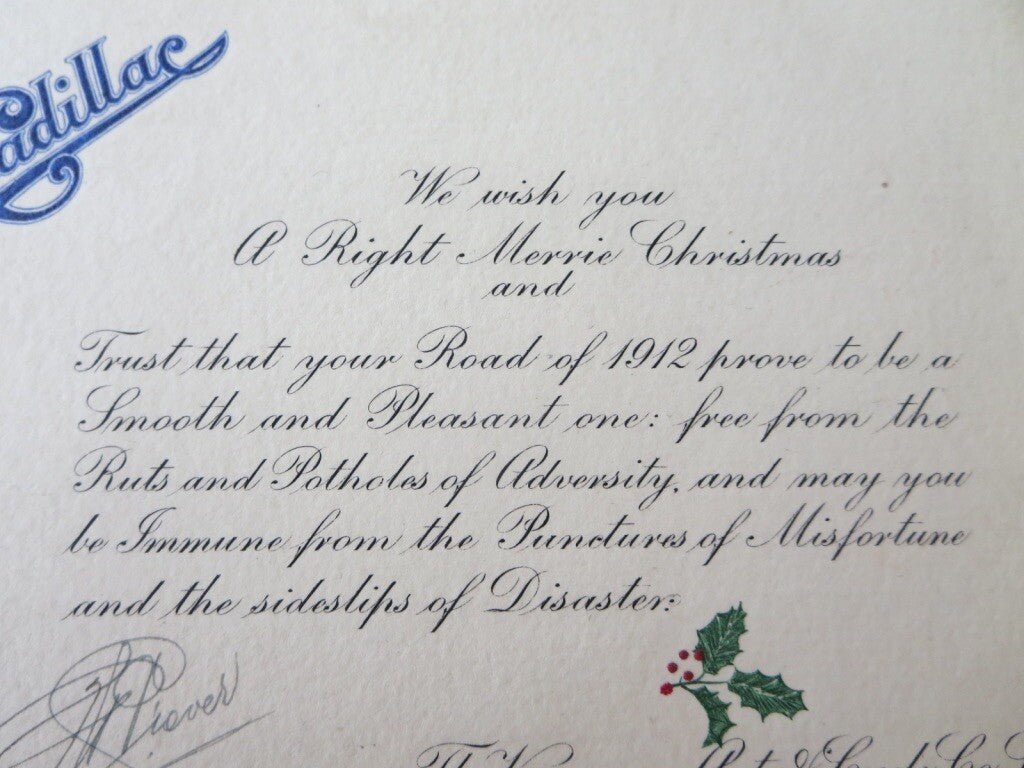 Cadillac
We wish you
A Right Merrie Christmas
and
Trust that your Road of 1912 prove to be a
Smooth and Pleasant one: free from the
Ruts and Potholes of Adversity, and may you
be Immune from the Punctures of Misfortune
and the sideslips of Disaster: